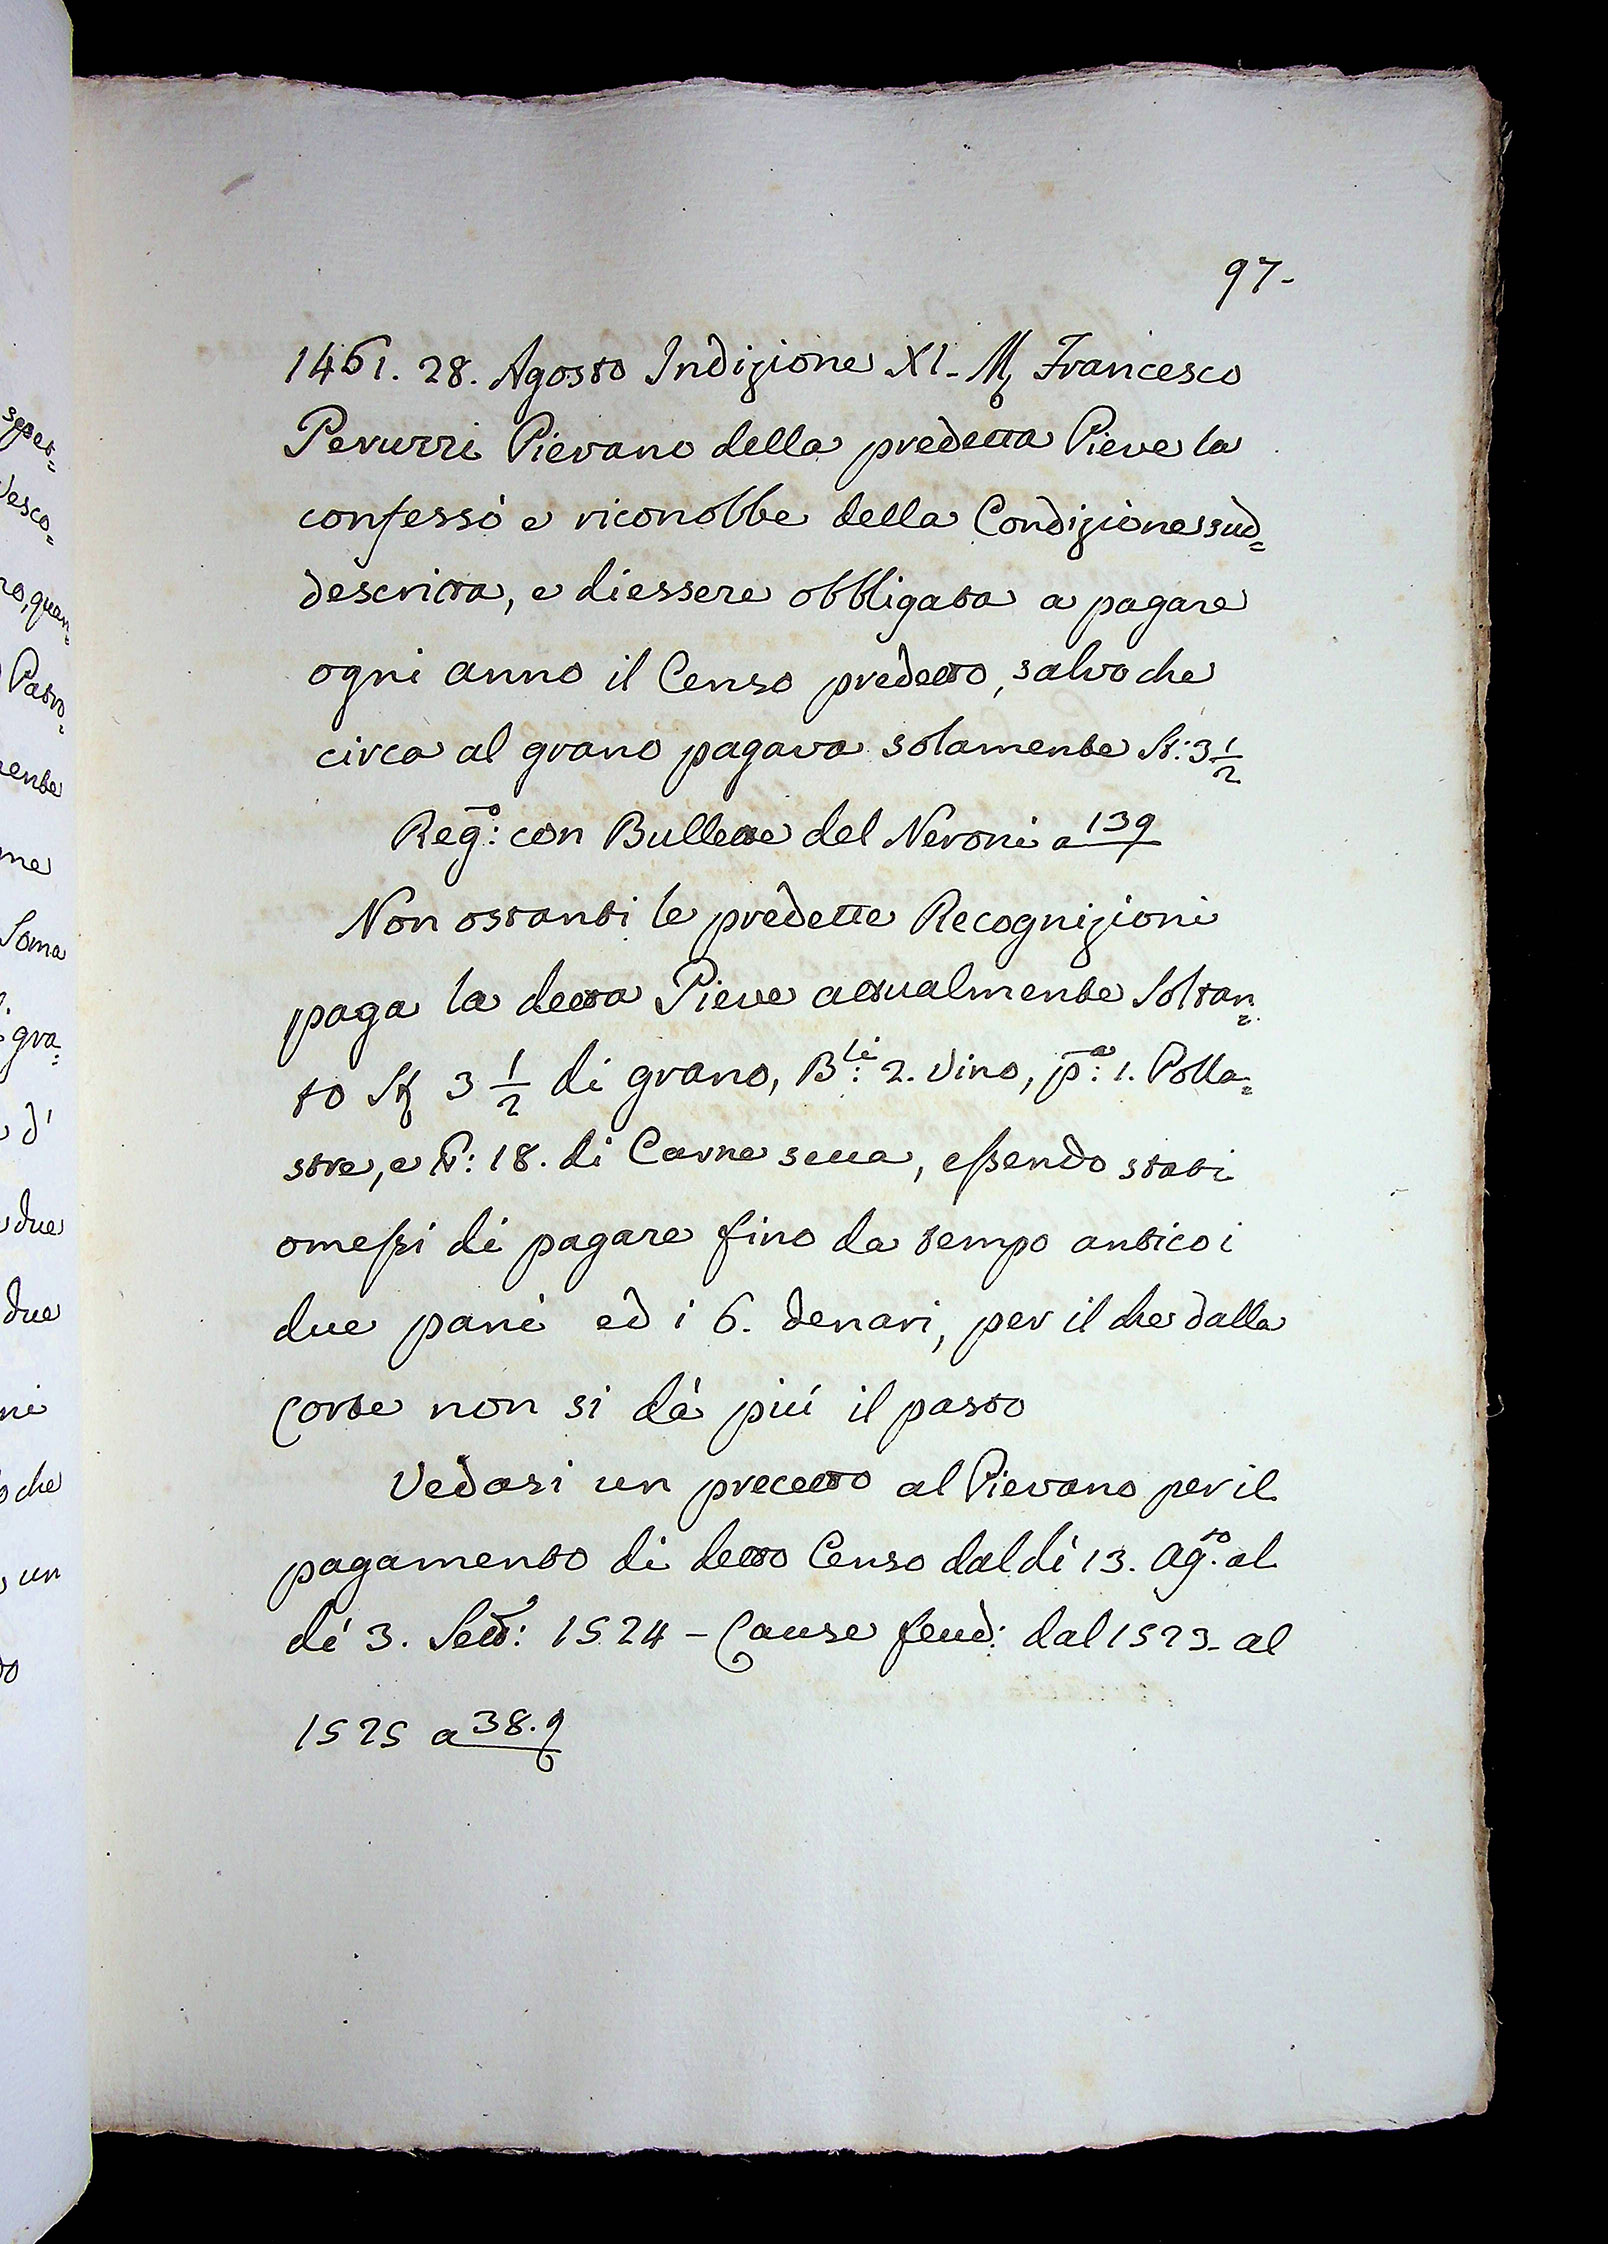 97-
1461. 28. Agosto Indizione XI- M. Francesco
Peruzzi Pievano della predetta Pieve la
confessò e riconobbe della Condizione sud=
descritta, e di essere obbligata a pagare
ogni anno il Censo predetto, salvo che
circa al grano pagava solamente St: 3 1/2
Reg.o: con Bullette del Neroni a 139
Non ostanti le predette Recognizioni
paga la detta Pieve attualmente Soltan=
to St 3 1/2 di grano, B.li: 2. Vino, p.a: 1. Polla=
stre, e lb: 18. di Carne secca, essendo stati
omessi di pagare fino da tempo antico i
due pani ed i 6. denari, per il che dalla
Corte non si dà più il pasto
Vedasi un precetto al Pievano per il
pagamento di detto Censo dal dì 13. Ag.to al
dì 3. Sett: 1524 - Cause feud: dal 1523- al
1525 a 38. 9
sepet=
Vesco=
no, quan=
Patro=
mente
me
Soma
gra=
d'
due
due
ni
che
un